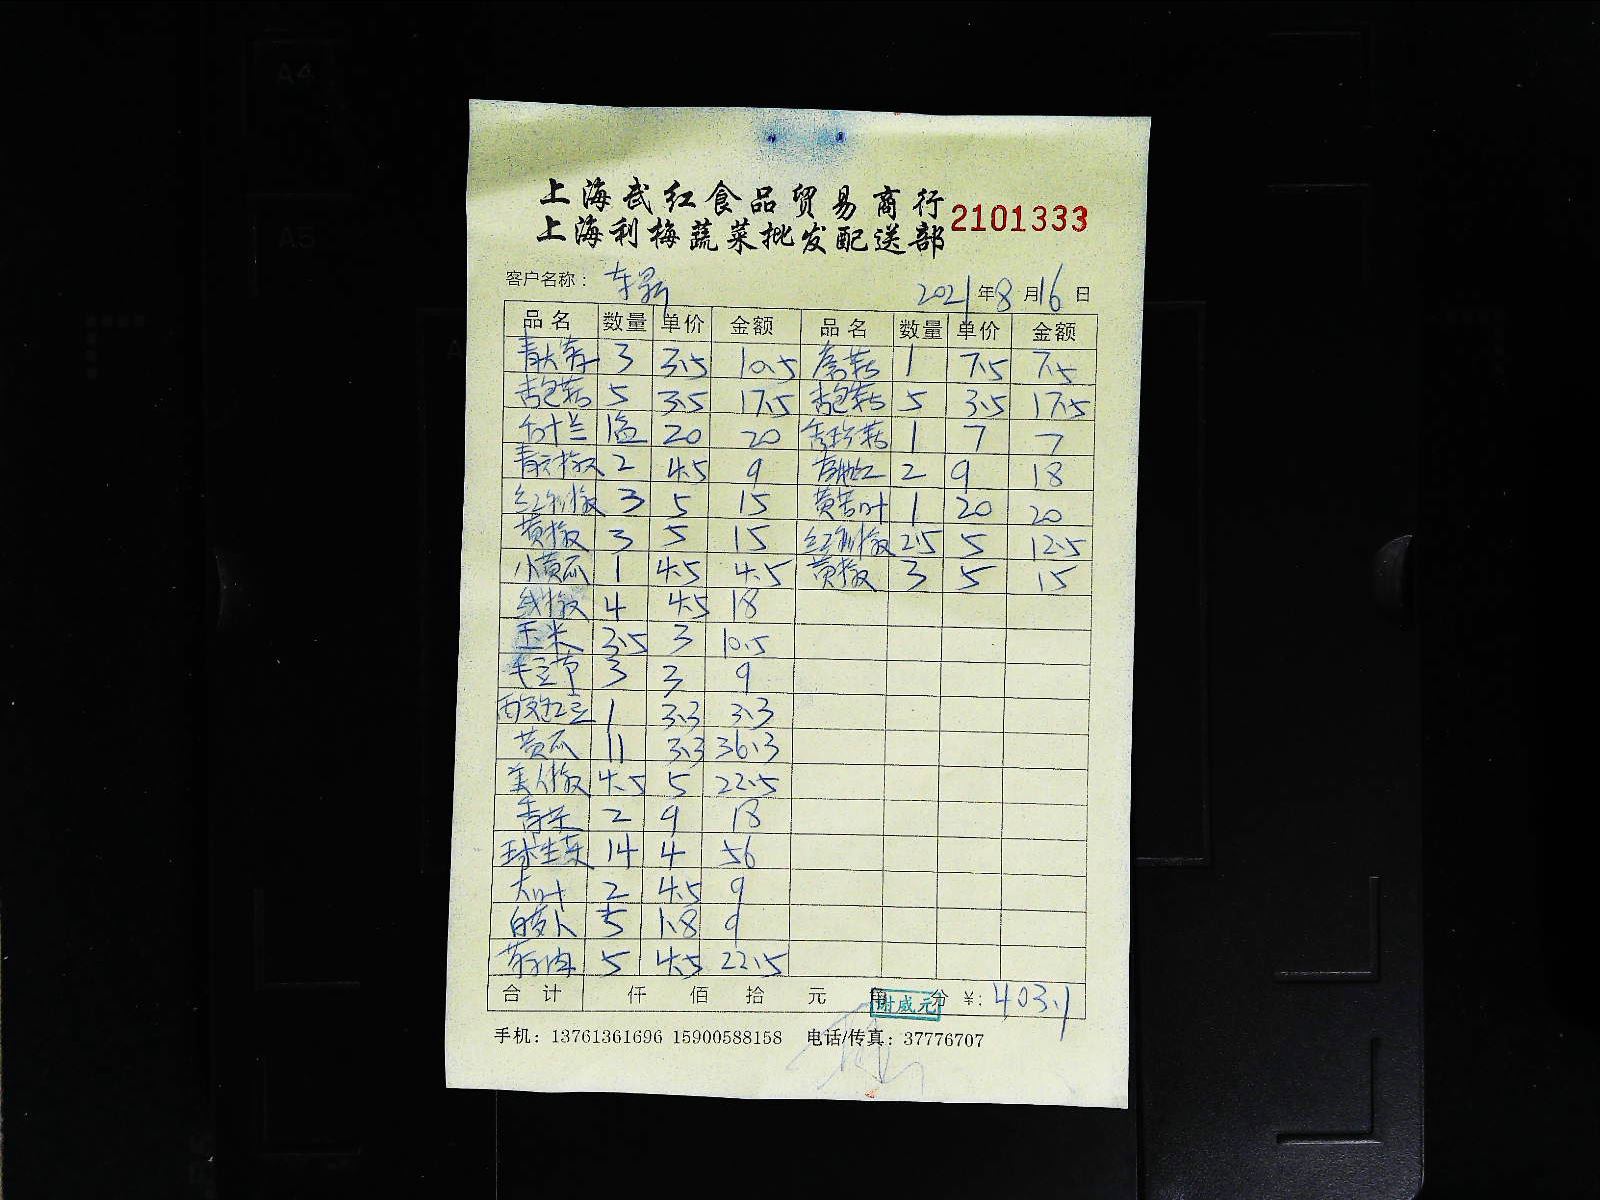 上海武红食品贸易商行
上海利梅蔬菜批发配送部 2101333
客户名称： 2021年8月16日
品名 数量 单价 金额 品名 数量 单价 金额
3 3.5 10.5 1 7.5 7.5
杏包菇 5 3.5 17.5 杏包菇 5 3.5 17.5
1盆 20 20 秀珍菇 1 7 7
2 4.5 9 2 9 18
红椒 3 5 15 1 20 20
黄椒 3 5 15 红椒 2.5 5 12.5
小黄瓜 1 4.5 4.5 黄椒 3 5 15
线椒 4 4.5 18
玉米 3.5 3 10.5
毛豆节 3 3 9
1 3.3 3.3
黄瓜 11 3.3 36.3
美人椒 4.5 5 22.5
香菜 2 9 18
球生菜 14 4 56
大叶 2 4.5 9
白萝卜 5 1.8 9
5 4.5 22.5
合计 仟 佰 拾 元 角 分 ¥: 403.1
谢威元
手机：13761361696 15900588158 电话/传真：37776707